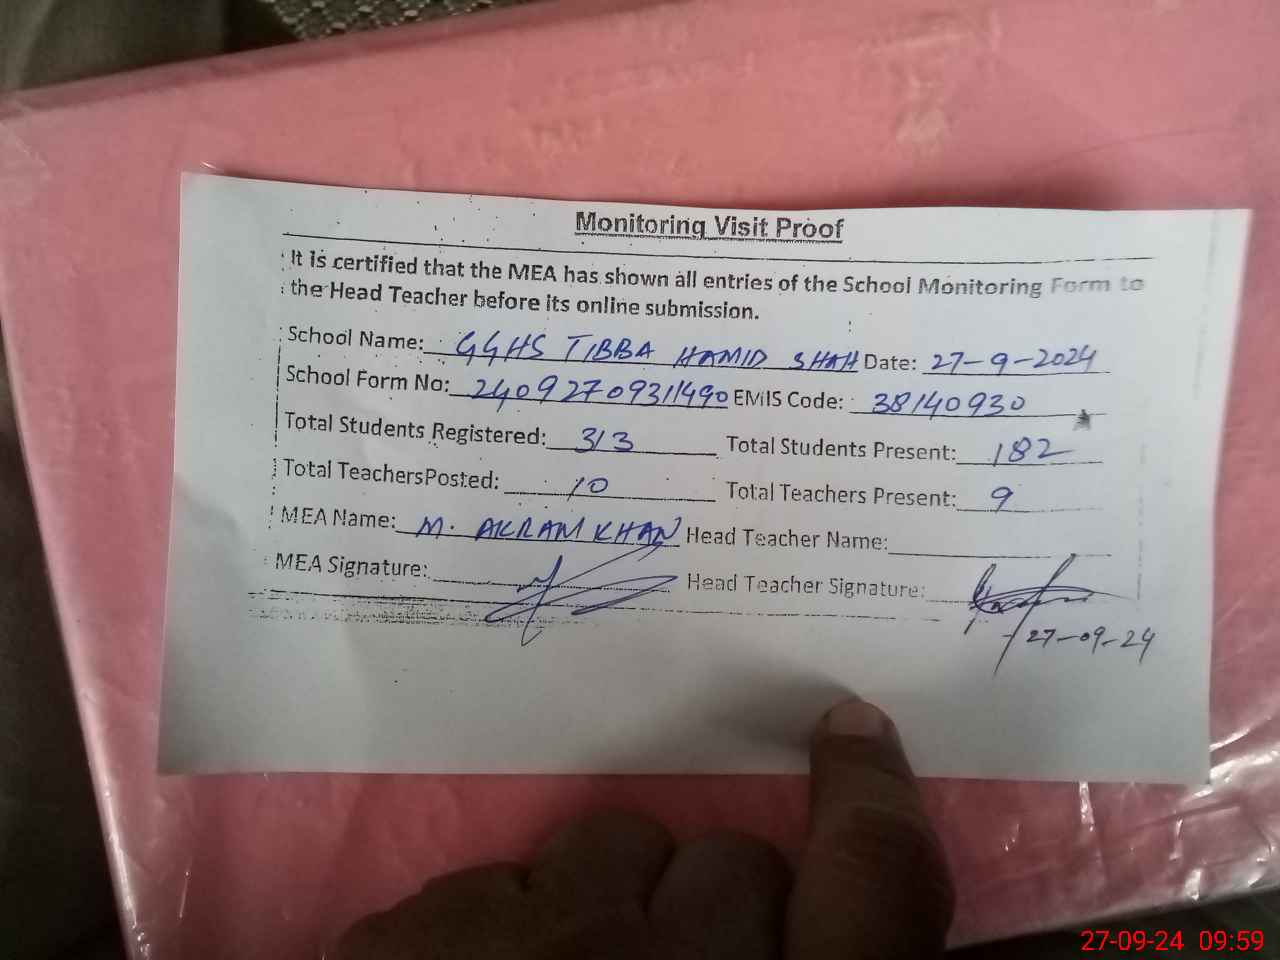 Monitoring Visit Proof
It is certified that the MEA has shown all entries of the School Monitoring Form to
the Head Teacher before its online submission.
School Name: GGHS TIBBA HAMID SHAH Date: 27-9-2024
School Form No: 24092709311490 EMIS Code: 38140930
Total Students Registered: 313 Total Students Present: 182
Total TeachersPosted: 10 Total Teachers Present: 9
MEA Name: M. AKRAM KHAN Head Teacher Name:
MEA Signature: Head Teacher Signature:
27-09-24
27-09-24 09:59